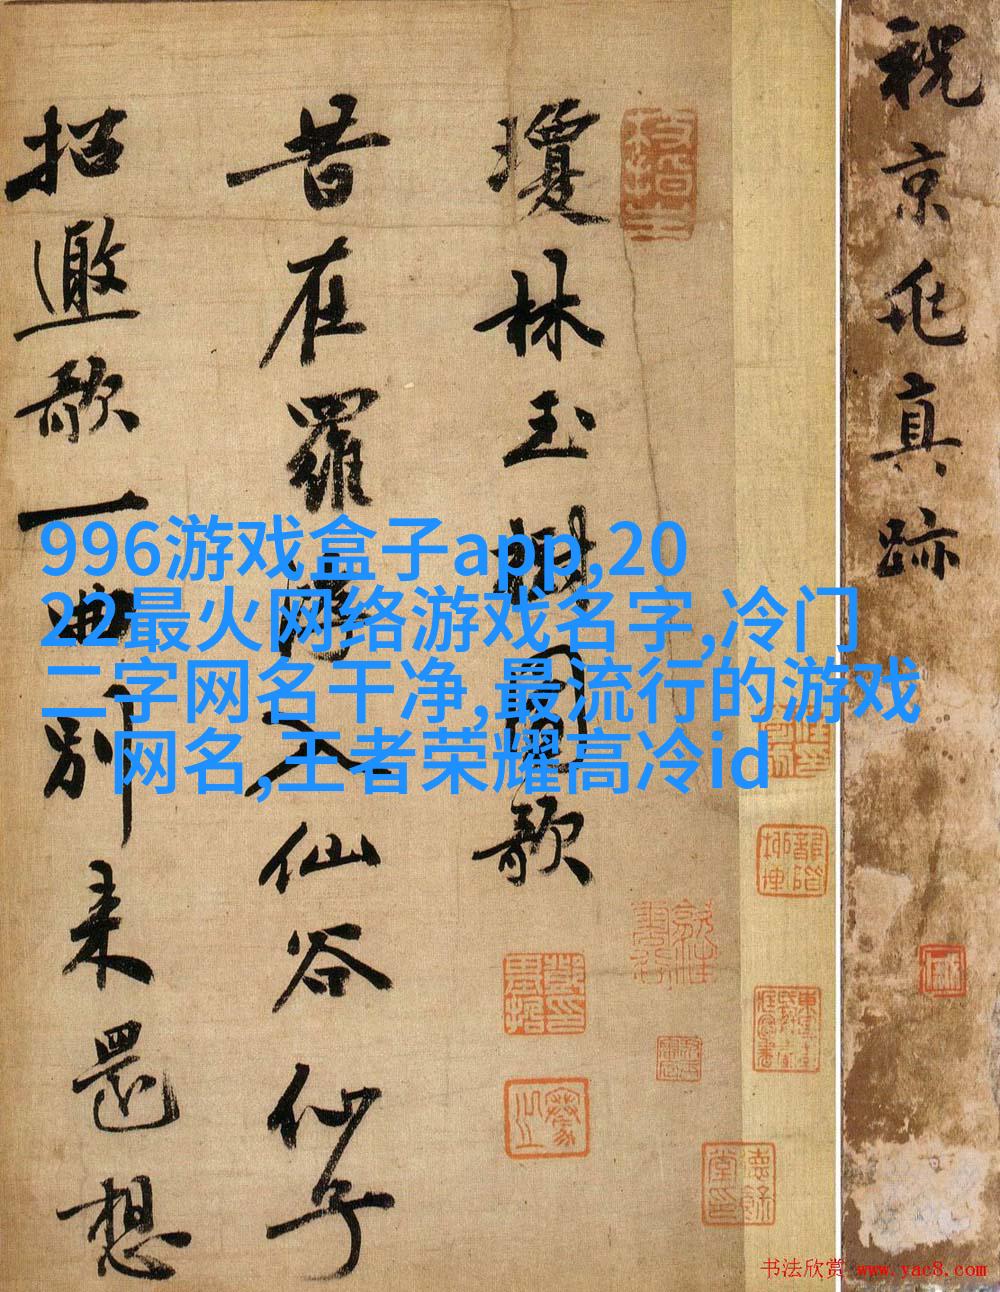 祝京兆真跡
瓊林玉樹歌
昔在羅浮入仙谷仙子
招邀歌一曲別來還想
996游戏盒子app,20
22最火网络游戏名字,冷门
二字网名干净,最流行的游戏
网名,王者荣耀高冷id
书法欣赏 www.yac8.com